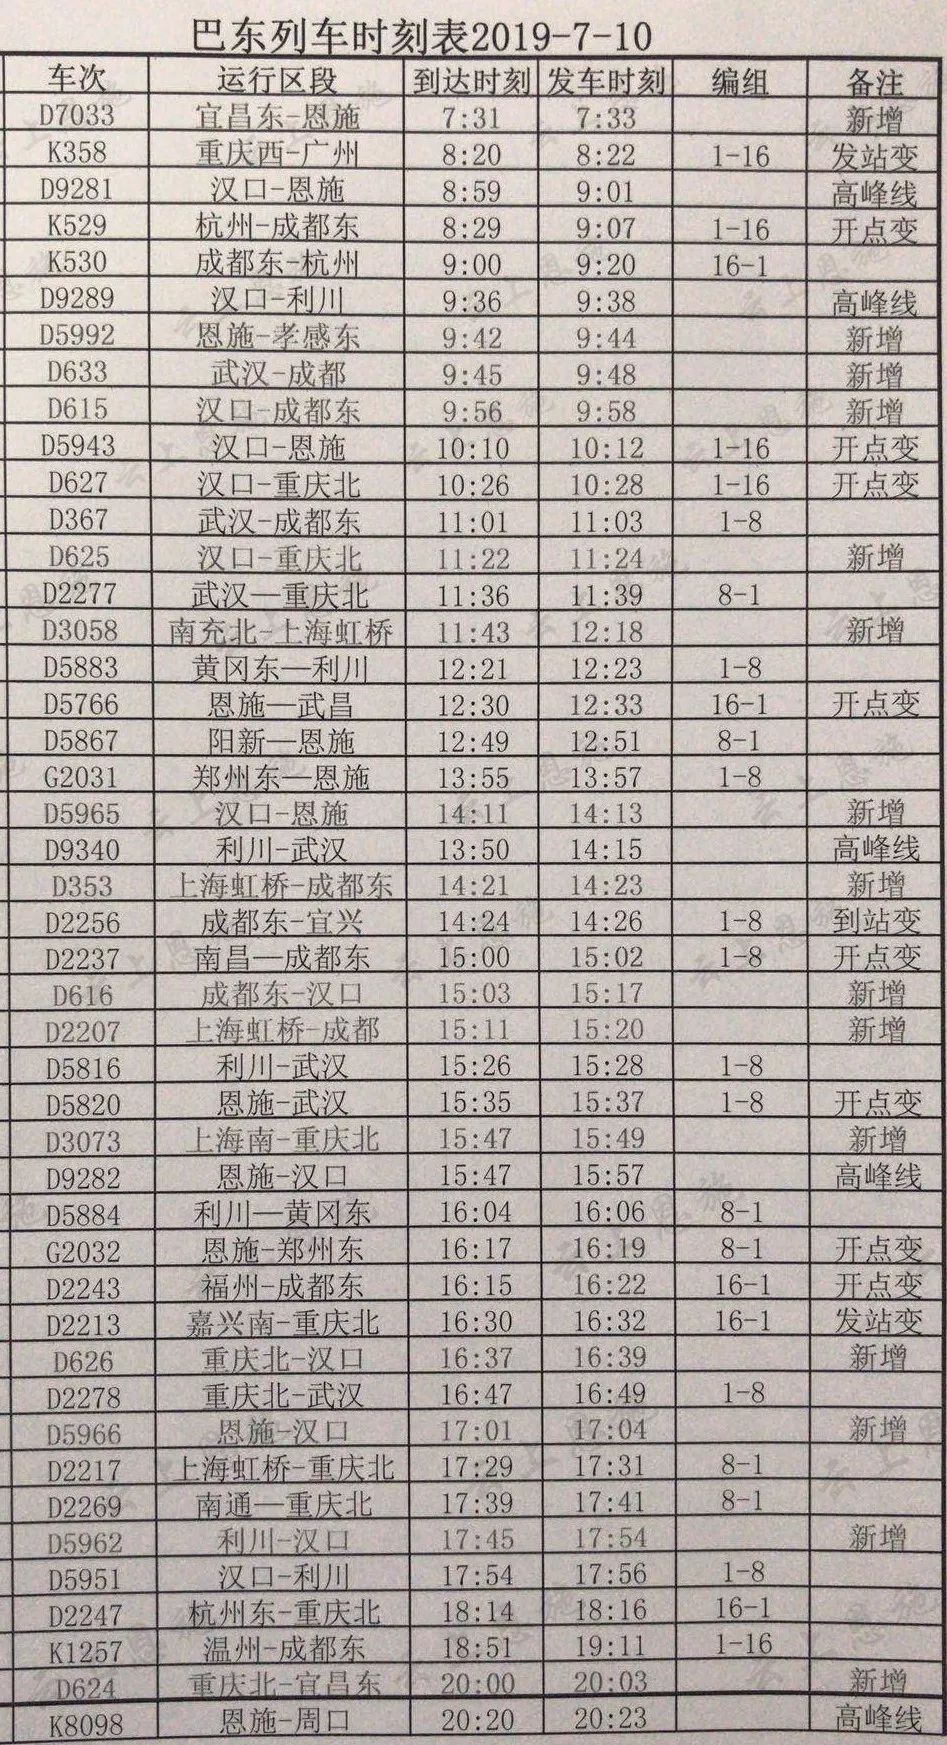 巴东列车时刻表2019-7-10
车次 运行区段 到达时刻 发车时刻 编组 备注
D7033 宜昌东-恩施 7:31 7:33 新增
K358 重庆西-广州 8:20 8:22 1-16 发站变
D9281 汉口-恩施 8:59 9:01 高峰线
K529 杭州-成都东 8:29 9:07 1-16 开点变
K530 成都东-杭州 9:00 9:20 16-1
D9289 汉口-利川 9:36 9:38 高峰线
D5992 恩施-孝感东 9:42 9:44 新增
D633 武汉-成都 9:45 9:48 新增
D615 汉口-成都东 9:56 9:58 新增
D5943 汉口-恩施 10:10 10:12 1-16 开点变
D627 汉口-重庆北 10:26 10:28 1-16 开点变
D367 武汉-成都东 11:01 11:03 1-8
D625 汉口-重庆北 11:22 11:24 新增
D2277 武汉—重庆北 11:36 11:39 8-1
D3058 南充北-上海虹桥 11:43 12:18 新增
D5883 黄冈东—利川 12:21 12:23 1-8
D5766 恩施—武昌 12:30 12:33 16-1 开点变
D5867 阳新—恩施 12:49 12:51 8-1
G2031 郑州东—恩施 13:55 13:57 1-8
D5965 汉口-恩施 14:11 14:13 新增
D9340 利川-武汉 13:50 14:15 高峰线
D353 上海虹桥-成都东 14:21 14:23 新增
D2256 成都东-宜兴 14:24 14:26 1-8 到站变
D2237 南昌—成都东 15:00 15:02 1-8 开点变
D616 成都东-汉口 15:03 15:17 新增
D2207 上海虹桥-成都 15:11 15:20 新增
D5816 利川-武汉 15:26 15:28 1-8
D5820 恩施-武汉 15:35 15:37 1-8 开点变
D3073 上海南-重庆北 15:47 15:49 新增
D9282 恩施-汉口 15:47 15:57 高峰线
D5884 利川—黄冈东 16:04 16:06 8-1
G2032 恩施-郑州东 16:17 16:19 8-1 开点变
D2243 福州-成都东 16:15 16:22 16-1 开点变
D2213 嘉兴南-重庆北 16:30 16:32 16-1 发站变
D626 重庆北-汉口 16:37 16:39 新增
D2278 重庆北-武汉 16:47 16:49 1-8
D5966 恩施-汉口 17:01 17:04 新增
D2217 上海虹桥-重庆北 17:29 17:31 8-1
D2269 南通—重庆北 17:39 17:41 8-1
D5962 利川-汉口 17:45 17:54 新增
D5951 汉口-利川 17:54 17:56 1-8
D2247 杭州东-重庆北 18:14 18:16 16-1
K1257 温州-成都东 18:51 19:11 1-16
D624 重庆北-宜昌东 20:00 20:03 新增
K8098 恩施-周口 20:20 20:23 高峰线